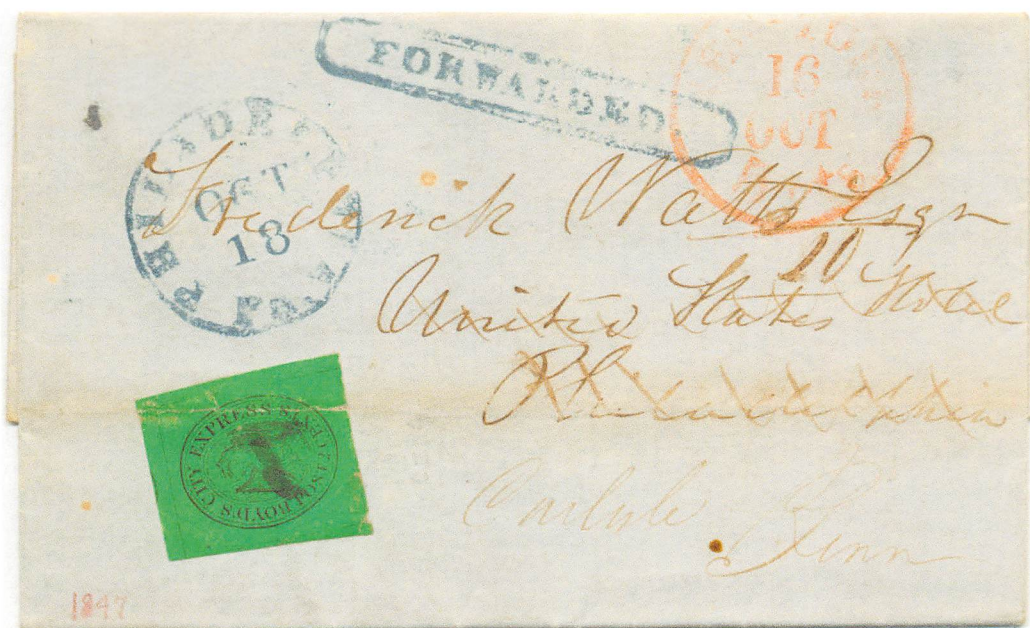 FORWARDED.
16
OCT
PHILADELPHIA Pa.
OCT
18
Frederick Watts Esqr
10
United States Hotel
Philadelphia
Carlisle
Penn
BOYD'S CITY EXPRESS POST
1847